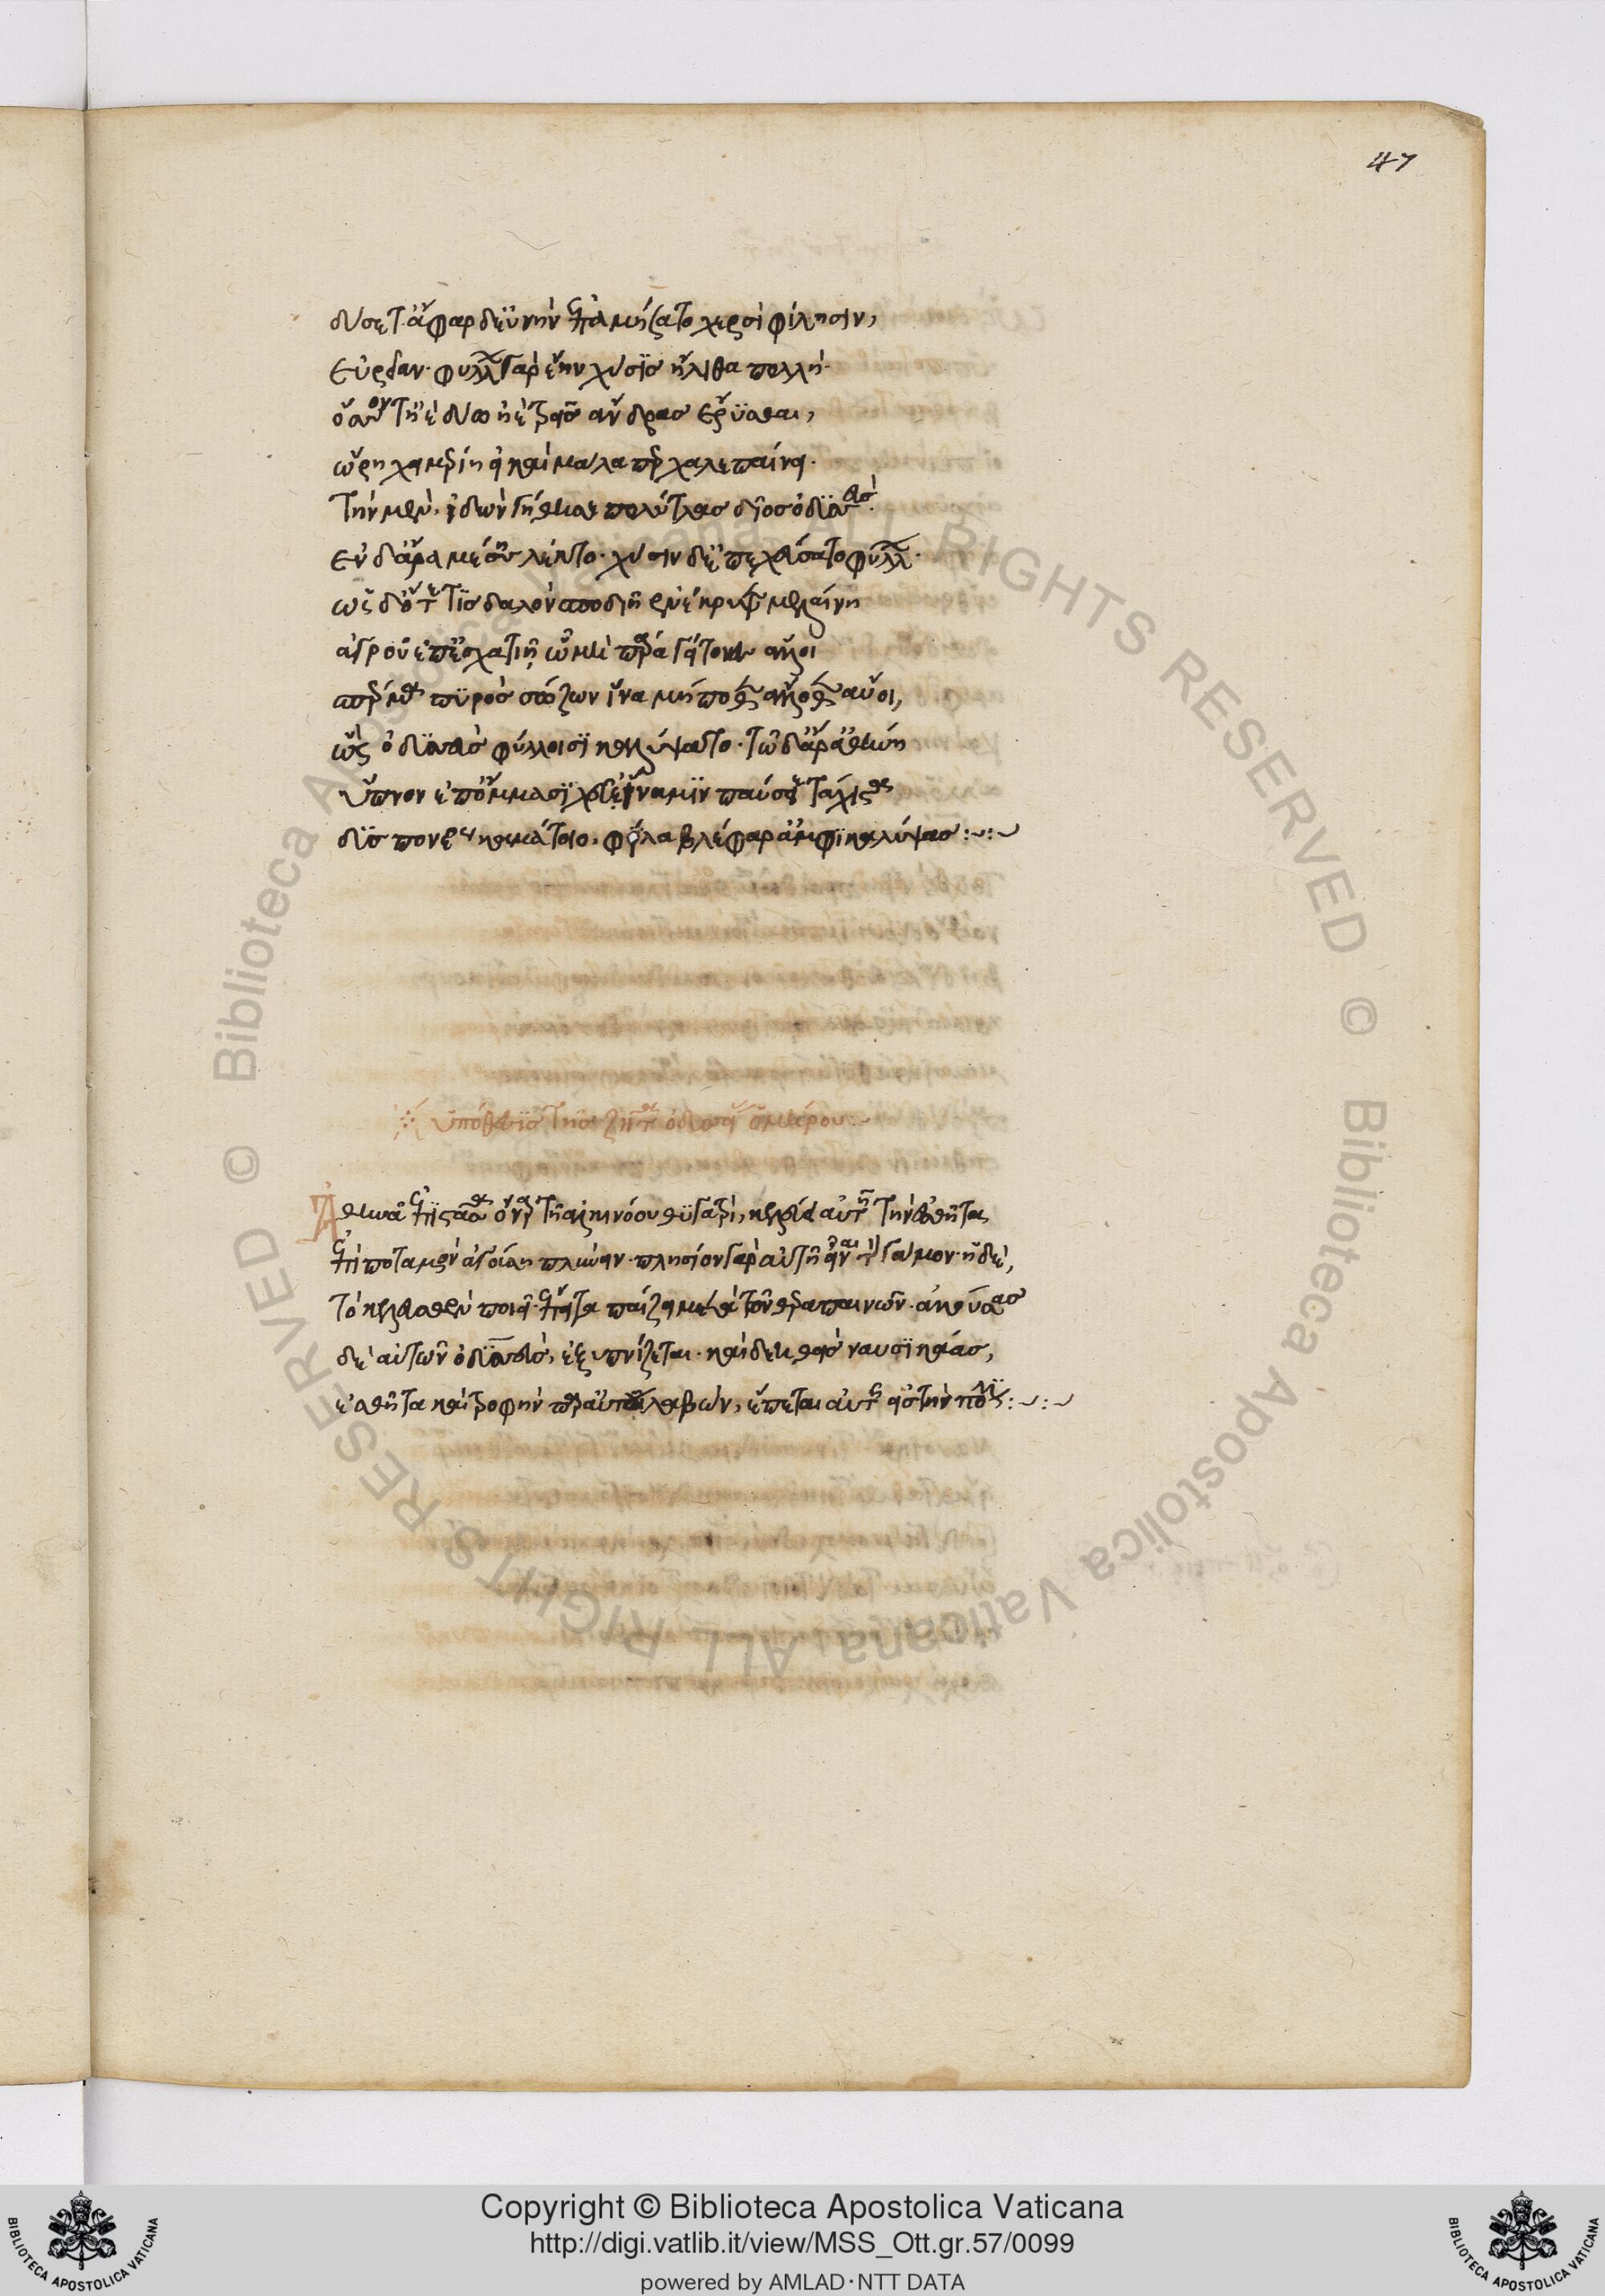 47
δύσετ' ἄφαρ δ' εὐνὴν ἐπαμήσατο χερσὶ φίλησιν,
εὐρεῖαν· φύλλων γὰρ ἔην χύσις ἤλιθα πολλή·
ὅσσον τ' ἠὲ δύω ἠὲ τρεῖς ἄνδρας ἔρυσθαι,
ὥρῃ χειμερίῃ εἰ καὶ μάλα περ χαλεπαίνει·
τὴν μὲν ἰδὼν γήθησε πολύτλας δῖος ὀδυσσεύς·
ἐν δ' ἄρα μέσση λέκτο· χύσιν δ' ἐπεχεύσατο φύλλων·
ὡς δ' ὅτε τὶς δαλὸν σποδιῇ ἐνέκρυψε μελαίνῃ
ἀγροῦ ἐπ' ἐσχατιῇ, ὧ μὴ πάρα γείτονες ἄλλοι
σπέρμα πυρὸς σώζων ἵνα μή ποθεν ἄλλοθεν αὔοι,
ὣς ὀδυσσεὺς φύλλοισι καλύψατο· τῶ δ' ἄρ' ἀθήνη
ὕπνον ἐπ' ὄμμασι χεῦ' ἵνα μιν παύσειε τάχιστα
δυσπονέος καμάτοιο, φίλα βλέφαρ' ἀμφικαλύψας :~:~
ὑπόθεσις τῆς ζῆτα ὀδυσσείας ὁμήρου:~
Ἀθηνᾶ ἐπιστᾶσα ὄναρ τῇ ἀλκινόου θυγατρὶ, κελεύει αὐτῇ τὴν ἐσθῆτα
ἐπὶ ποταμὸν ἀγούσῃ πλύνειν· πλησίον γὰρ αὐτῇ εἶναι τὸν γάμον· ἡ δὲ,
τὸ κελευσθὲν ποιεῖ· ἔπειτα παίζει μετὰ τῶν θεραπαινῶν· ἀκούσας
δὲ αὐτῶν ὀδυσσεὺς, ἐξυπνίζεται· καὶ δεηθεὶς ναυσικάας,
ἐσθῆτα καὶ τροφὴν παρ' αὐτῆς λαβὼν, ἕπεται αὐτῇ εἰς τὴν πόλιν :~:~
© Biblioteca Apostolica Vaticana, ALL RIGHTS RESERVED © Biblioteca Apostolica Vaticana, ALL RIGHTS RESERVED
BIBLIOTECA APOSTOLICA VATICANA
Copyright © Biblioteca Apostolica Vaticana
http://digi.vatlib.it/view/MSS_Ott.gr.57/0099
powered by AMLAD·NTT DATA
BIBLIOTECA APOSTOLICA VATICANA